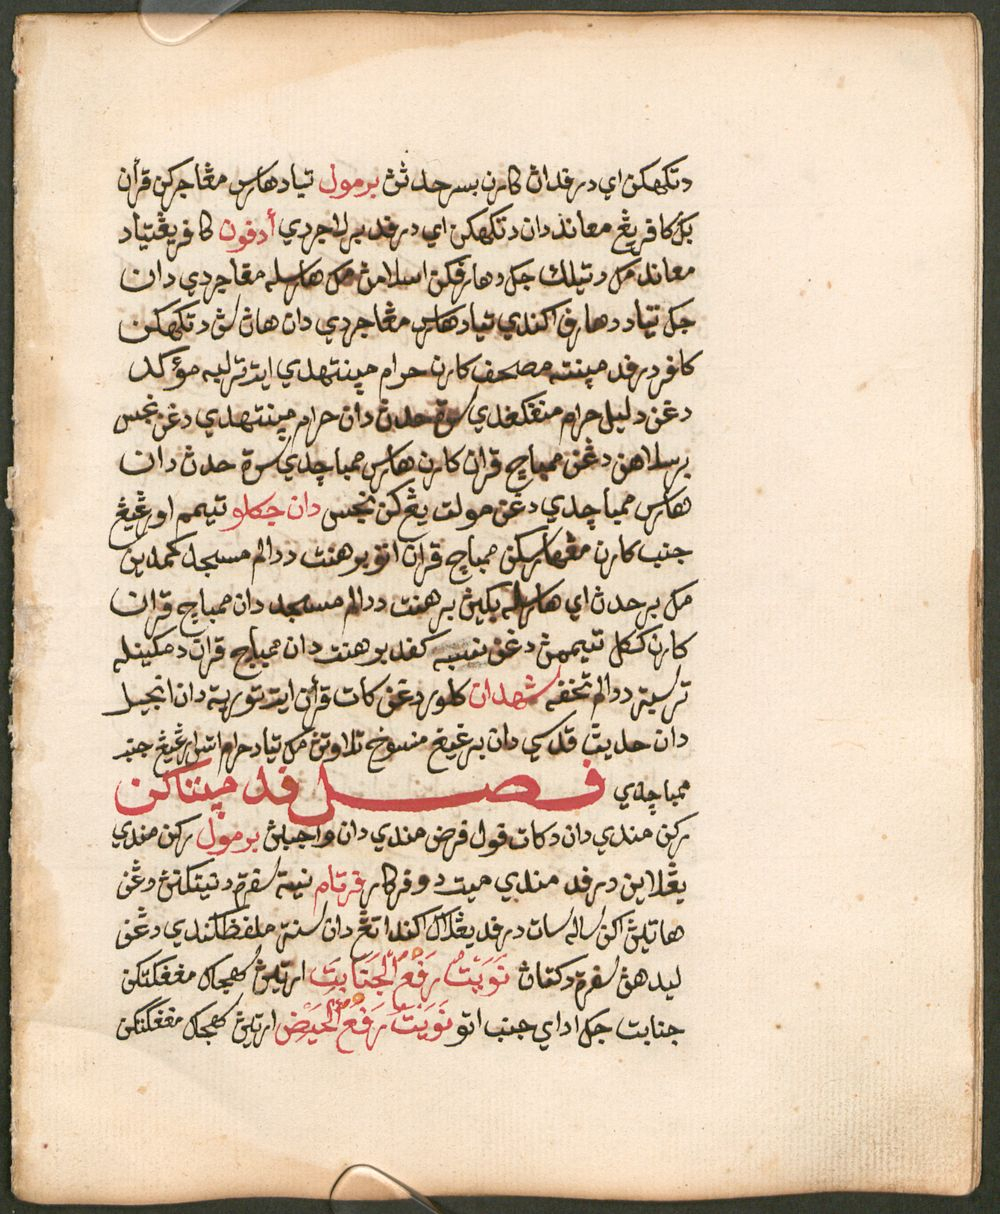 دتڬهكن اي درفدان كارن بسر حدثن برمول تياد هارس مڠاجركن قرأن
بڬ كافر يڠ معاند دان دتڬهكن اي درفد برلاجردي أدفون كافر يڠ تياد
معاند مك دتيلك جك دهارفكن اسلامن مك هارسله مڠاجردي دان
جك تياد دهارف اكندي تياد هارس مڠاجردي دان هاڽ ست دتڬهكن
كافر درفد مپنته مصحف كارن حرام مپنتهدي ايت ترلبه مؤكد
دڠن دليل حرام منڠكڠدي سرة حدث دان حرام مپنتهدي دڠن نجس
برسلاهن دڠن ممباچ قران كارن هارس ممباچدي سرة حدث دان
هارس ممباچدي دڠن مولت يڠ كن نجس دان جكلو تيمم اورڠ يڠ
جنب كارن مڠهارسكن ممباچ قران اتو برهنت ددالم مسجد كمدين
مك برحدث اي هارسله بڬين برهنت ددالم مسجد دان ممباچ قران
كارن ككل تيممن دڠن نسبه كفد برهنت دان ممباچ قران دمكينله
ترسبت ددالم تحفه شهدان كلور دڠن كات قرأن ايت توريه دان انجيل
دان حديث قدسي دان برڠيڠ منسوخ تلاوتن مك تياد حرام اتس اورڠ يڠ جنب
ممباچدي فصل فد مپتاكن
ركن مندي دان دكات قول فرض مندي دان واجبن برمول ركن مندي
يڠ لاين درفد مندي ميت دو فركار فرتام نية سفرة دنيتكنن دڠن
هاتين اكن ساله سات درفد يڠ لاڬ اكن داتڠ دان سنة ملفظكندي دڠن
ليدهن سفرة دكتاڽ نَوَيْتُ رَفْعَ الْجَنَابَتِ ارتين كسهجاك مڠڠكتكن
جنابت جك اداي جنب اتو نَوَيْتُ رَفْعَ الْحَيْضِ ارتين كسهجاك مڠڠكتكن